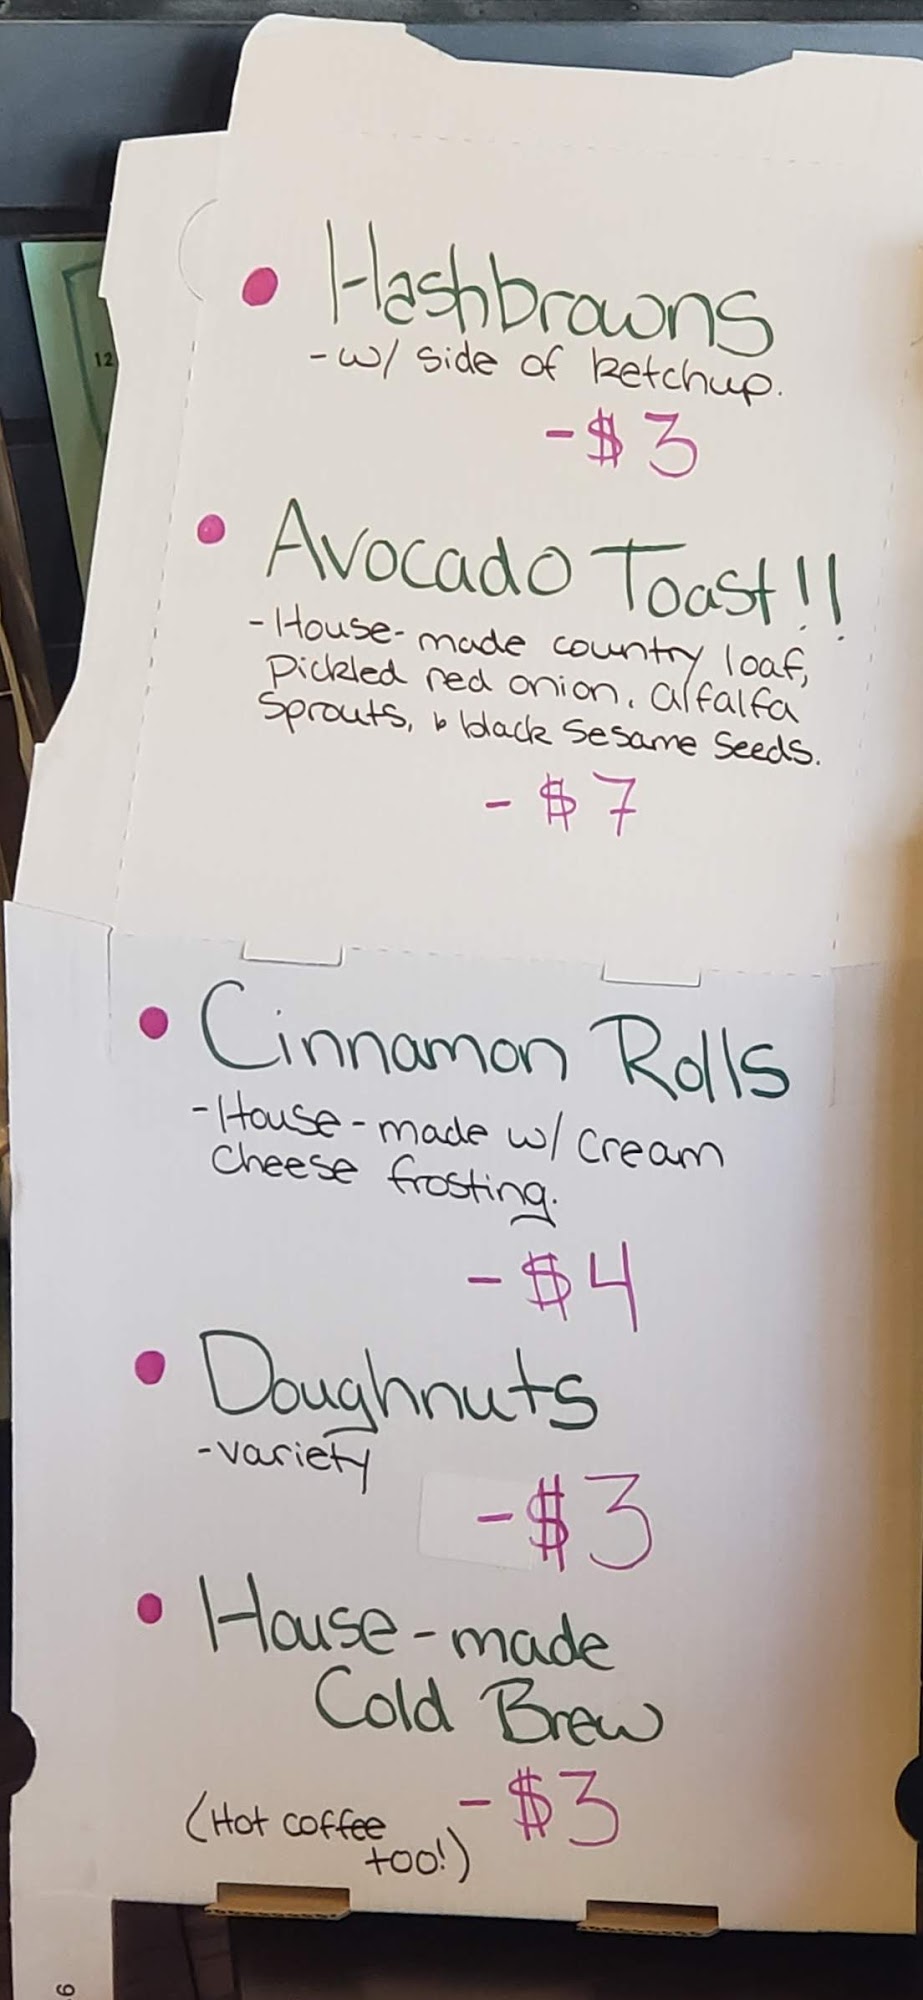 12
• Hashbrowns
- w/ side of ketchup.
- $3
• Avocado Toast!!
- House-made country loaf,
pickled red onion, alfalfa
sprouts, & black sesame seeds.
- $7
• Cinnamon Rolls
- House-made w/ cream
cheese frosting.
- $4
• Doughnuts
- variety
- $3
• House-made
Cold Brew
- $3
(Hot coffee
too!)
6